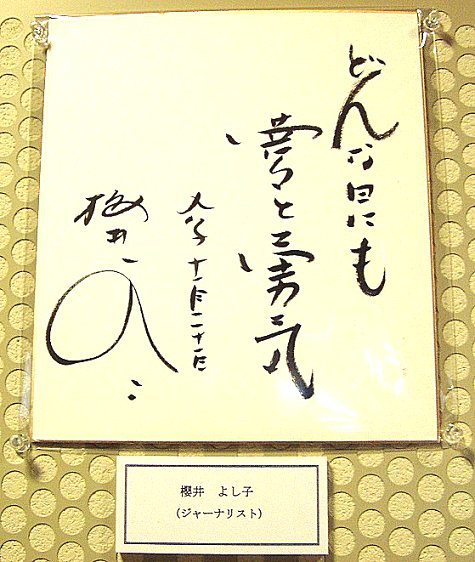 どんな日にも
夢と勇気
十一月二十一日
櫻井
櫻井 よし子
(ジャーナリスト)